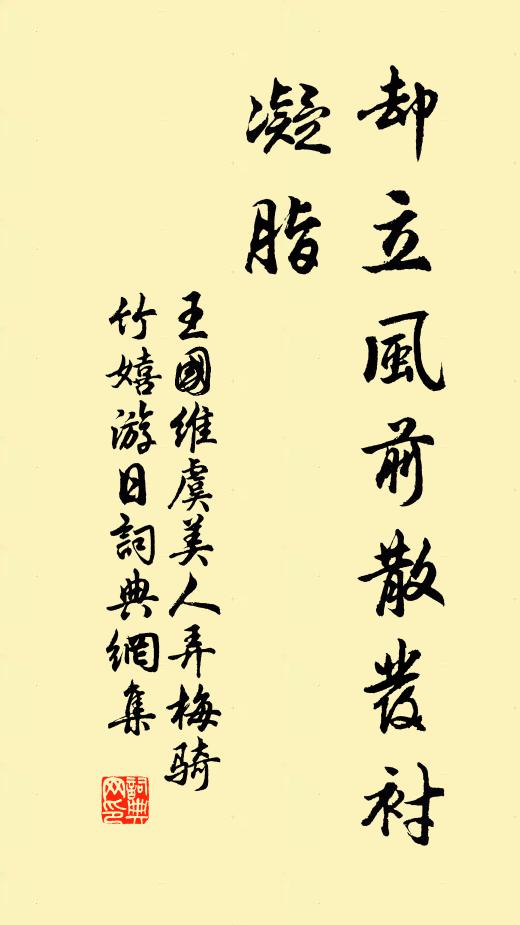 却立風前散發襯
凝脂
王國維虞美人弄梅騎
竹嬉游日詞典網集
詞典
网印